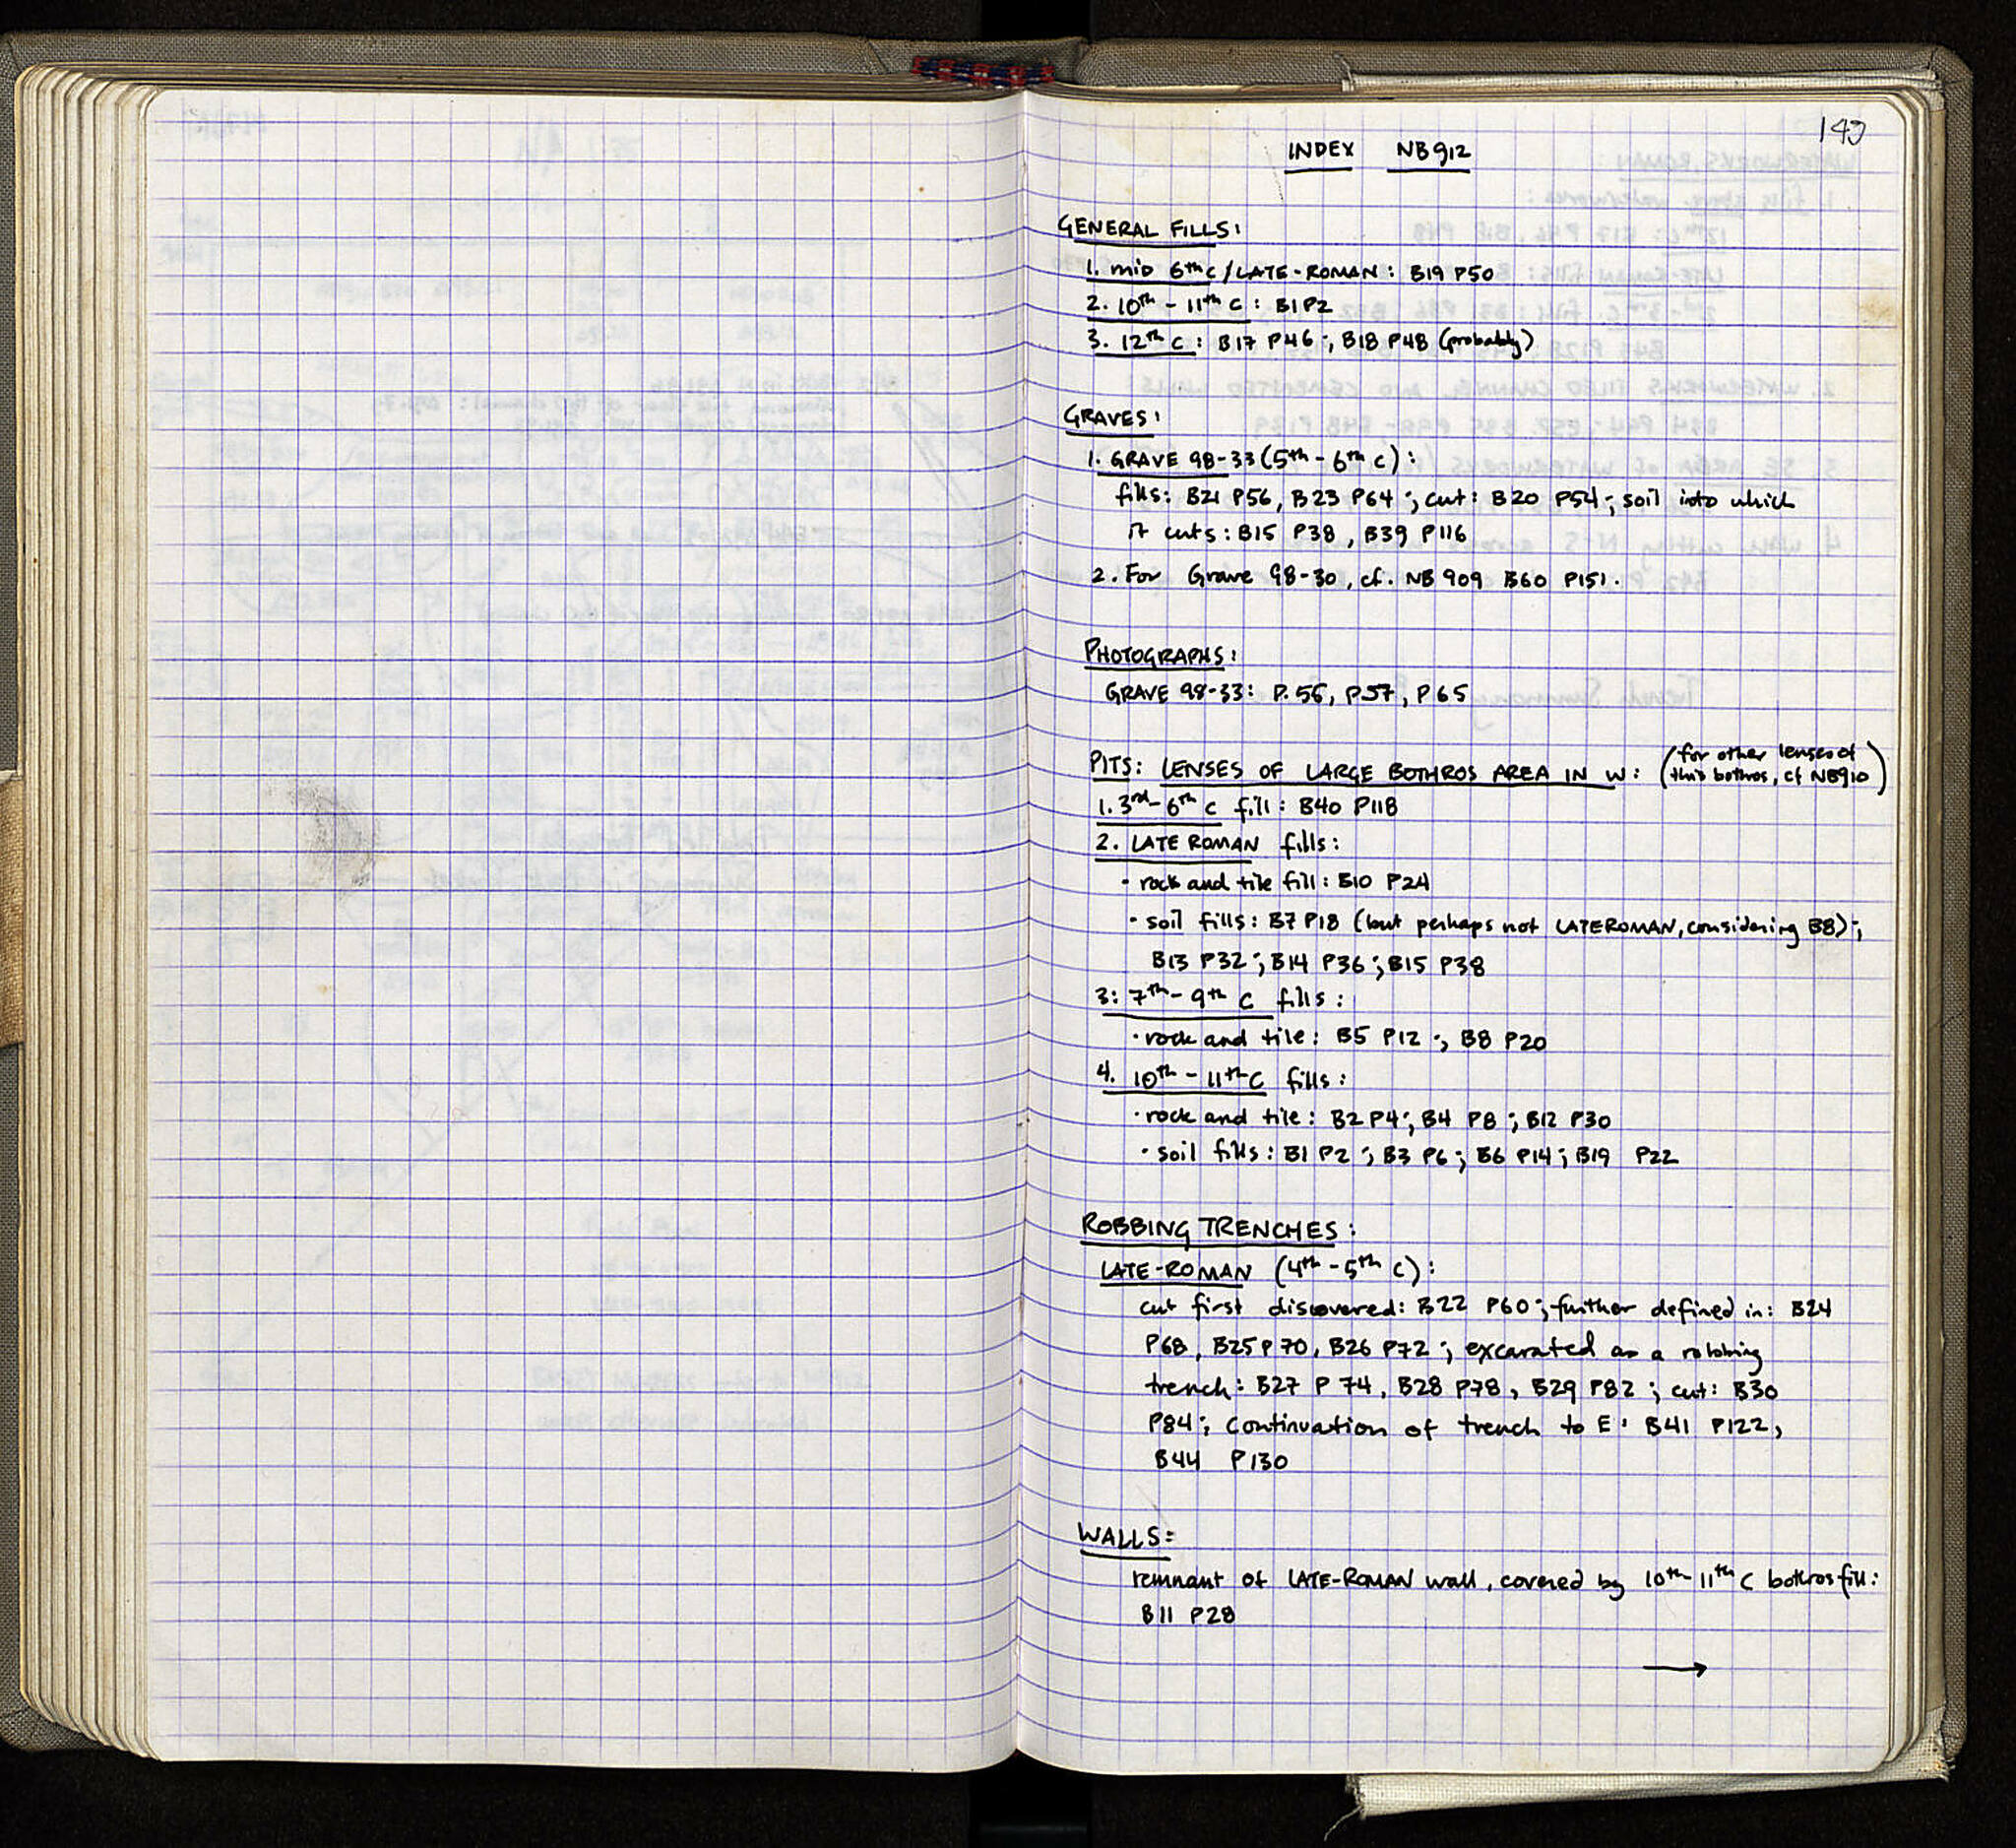 INDEX NB912
GENERAL FILLS:
1. mid 6th c/LATE-ROMAN: B19 P50
2. 10th - 11th C: B1P2
3. 12th C: B17 P46; B18 P48 (probably)
GRAVES:
1. GRAVE 98-33 (5th - 6th C):
fills: B21 P56, B23 P64; cut: B20 P54; soil into which
it cuts: B15 P38, B39 P116
2. For Grave 98-30, cf. NB 909 B60 P151.
PHOTOGRAPHS:
GRAVE 98-33: P. 56, P57, P65
PITS: LENSES OF LARGE BOTHROS AREA IN W: (for other lenses of
this bothros, cf NB910)
1. 3rd-6th C fill: B40 P118
2. LATE ROMAN fills:
• rock and tile fill: B10 P24
• soil fills: B7 P18 (but perhaps not LATEROMAN, considering B8);
B13 P32; B14 P36; B15 P38
3: 7th - 9th C fills:
• rock and tile: B5 P12; B8 P20
4. 10th - 11th C fills:
• rock and tile: B2 P4; B4 P8; B12 P30
• soil fills: B1 P2; B3 P6; B6 P14; B19 P22
ROBBING TRENCHES:
LATE-ROMAN (4th - 5th C):
cut first discovered: B22 P60; further defined in: B24
P68, B25 P70, B26 P72; excavated as a robbing
trench: B27 P 74, B28 P78, B29 P82; cut: B30
P84; continuation of trench to E: B41 P122,
B44 P130
WALLS:
remnant of LATE-ROMAN wall, covered by 10th-11th C bothros fill:
B11 P28
→